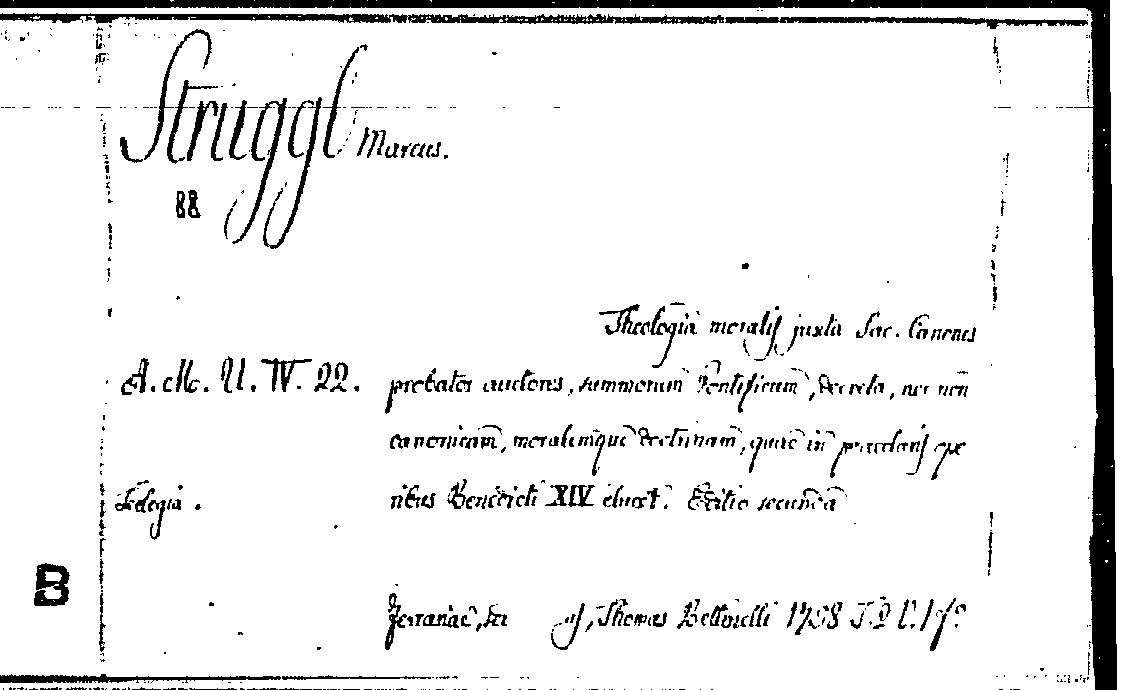 Struggl Marcus.
88
Theologia moralis juxta Sac. Canones
A. M. U. IV. 22. probatos auctores, summorum Pontificum, decreta, nec non
canonicam, moralemque doctrinam, quae in praeclaris ope
Teologia. ribus Benedicti XIV elucet. Editio secunda
B
Ferrariae, Thomas Bettinelli 1758 T. 2 V. 1 fº